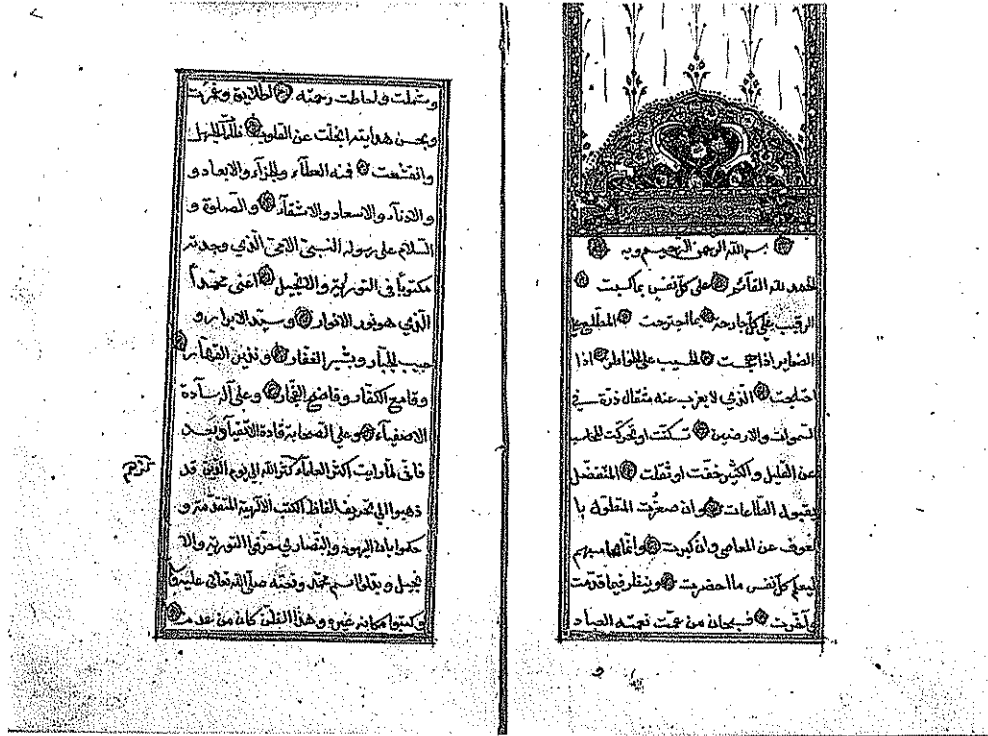 بسم الله الرحمن الرحيم وبه
الحمد لله القآئم على كل نفس بما كسبت
الرقيب على كل جارحة بما اجترحت المطلع على
الضماير اذا هجست الحسيب على الخواطر اذا
اختلجت الذي لا يعزب عنه مثقال ذرة في
السموات والارضين سكنت او تحركت المحاسب
عن القليل والكثير خفت او ثقلت المتفضل
بقبول الطاعات وان صغرت المتطول با
لعفو عن المعاصي وان كبرت وانما يحاسبهم
ليعلم كل نفس ما احضرت وينظر فيما قدمت
وأخرت فسبحان من عمت نعمته العباد
وشملت واحاطت رحمته الخلايق وغمرت
وبحسن هدايته انجلت عن القلوب ظلم الجهل
وانقشعت فمنه العطآء والجزآء والابعاد و
والادنآء والاسعاد والاشقآء والصلوة و
السلام على رسوله النبي الامي الذي وجدته
مكتوباً في التورية والانجيل اعني محمداً
الذي هو نور الانوار وسيد الابرار و
حبيب الجبار وبشير الغفار ونذير القهار
وقامع الكفار وفاضح الفجار وعلى آله سادة
الاصفيآء وعلى الصحابة قادة الاتقيآء وبعد
فاني لما رايت اكثر العلمآء كثر الله الي يوم الدين قد
كثرهم
ذهبوا الي تحريف الفاظ الكتب الالهية المتقدمة و
حكموا بان اليهود والنصاري حرفوا التورية والا
نجيل وبدلوا اسم محمد ونعته صلى الله تعالى عليه و
وكتبوا مكانه غيره وهذا الظن كان من عدم